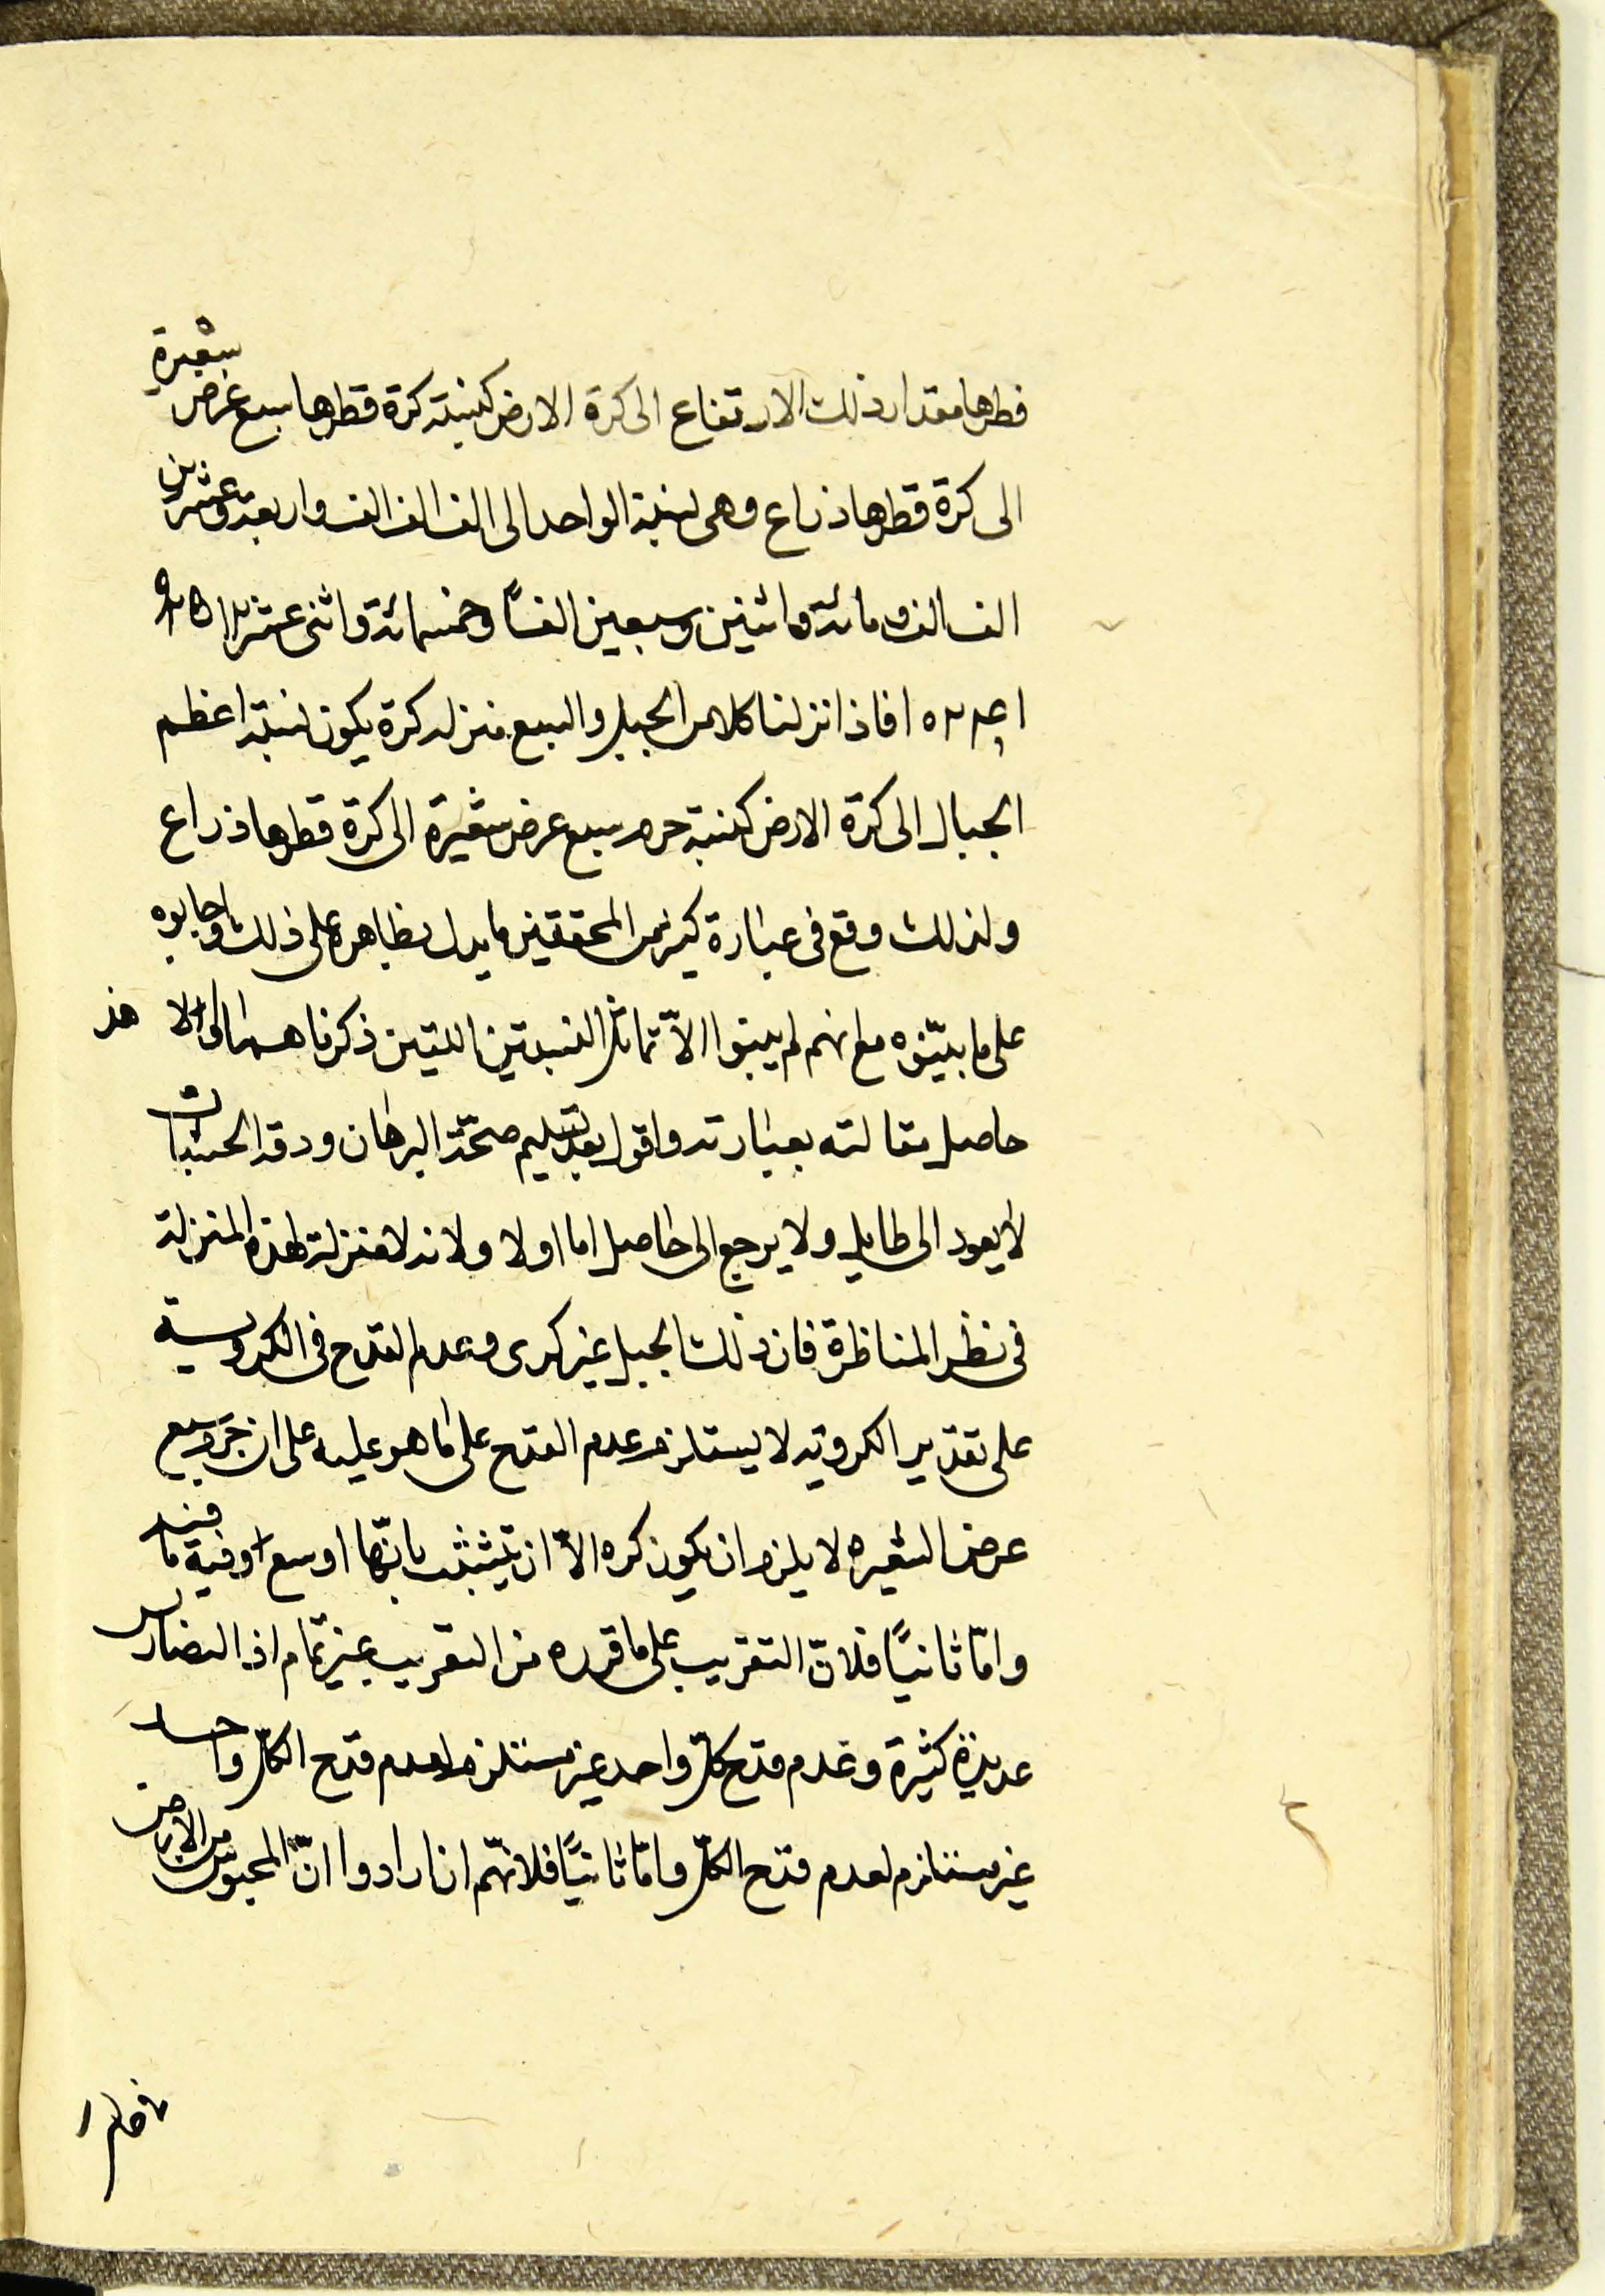 قطرها مقدار ذلك الارتفاع الى كرة الارض كنسبة كرة قطرها سبع عرض شعيرة
الى كرة قطرها ذراع وهى نسبة الواحد الى الف الف الف واربعة وعشرين
الف الف ومائة واثنين وسبعين الفًا وخمسمائة واثنى عشر
فاذا نزلنا كلا من الجبل والسبع منزله كرة يكون نسبة اعظم
الجبال الى كرة الارض كنسبة جرم سبع عرض شعيرة الى كرة قطرها ذراع
ولذلك وقع فى عبارة كثير من المحققين ما يدل بظاهره على ذلك واجابوه
على ما بينوه مع انهم لم يبينوا الاّ تماثل النسبتين اللتين ذكرناهما
حاصل مقالته بعبارته واقول بعد تسليم صحّة البرهان ودقة الحسبات
لا يعود الى طايل ولا يرجع الى حاصل اما اولا ولانه لا منزلة لهذه المنزلة
فى نظر المناظرة فان ذلك الجبل غير كرى وعدم القدح فى الكروية
على تقدير الكروية لا يستلزم عدم القدح على ما هو عليه على ان جرم سبع
عرض الشعيره لا يلزم ان يكون كره الاّ ان يتشبث بانّها اوسع وفيه ما فيه
وامّا ثانيًا فلانّ التقريب على ما قرره من التقريب غير تمام اذ التضاريس
عديدة كثيرة وعدم قدح كلّ واحد غير مستلزم لعدم قدح الكلّ واحد
غير مستلزم لعدم قدح الكلّ وامّا ثانيًا فلانّهم ان ارادوا انّ المحبوس من الارض